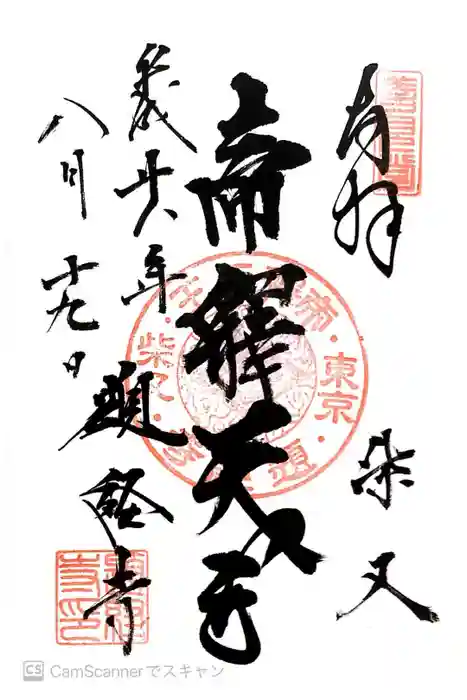 奉拝
柴又
帝釈天王
平成廿八年
八月十九日
題経寺
東京
柴又
CS CamScannerでスキャン